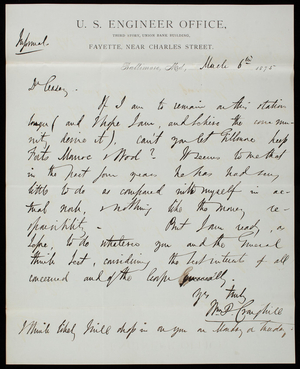 U. S. ENGINEER OFFICE,
THIRD STORY, UNION BANK BUILDING,
FAYETTE, NEAR CHARLES STREET.
Informal.
Baltimore, Md., March 6th 1875
Dr Casey,
If I am to remain on this station
longer (and I hope I am, and so does the commu-
nity desire it), can't you let Gillmore keep
Forts Monroe & Wool? It seems to me that
in the past few years he has had very
little to do as compared with myself in ac-
tual work, & nothing like the money re-
sponsibility. But I am ready, as
before, to do whatever you and the General
think best, considering the best interests of all
concerned and of the Corps generally.
Yrs truly
Wm P. Craighill
I think likely I will drop in on you on Monday or Tuesday.